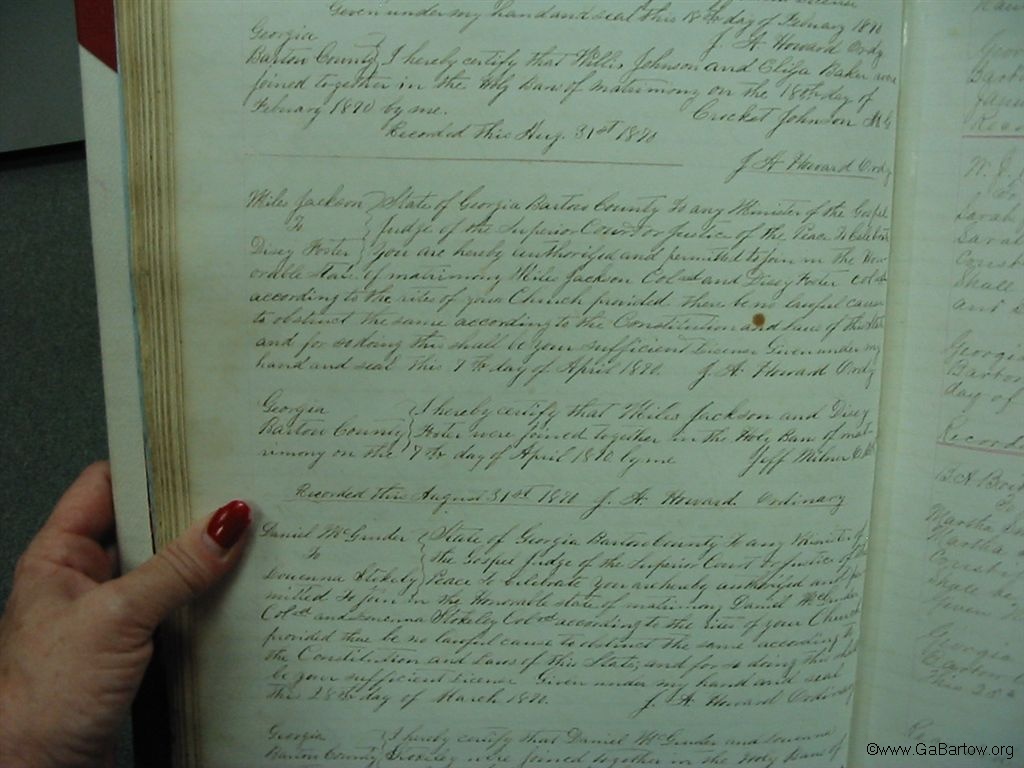 Given under my hand and seal this 18th day of February 1890
J. A. Howard Ordy
Georgia
Bartow County } I hereby certify that Willis Johnson and Eliza Baker were
joined together in the Holy Ban of matrimony on the 18th day of
February 1890 by me. Crocket Johnson M G
Recorded this Aug. 31st 1890
J. A. Howard Ordy
Miles Jackson } State of Georgia Bartow County To any Minister of the Gospel
To } Judge of the Superior Court or Justice of the Peace to Celebrate
Disey Foster } You are hereby authorized and permitted to join in the Hon-
orable state of matrimony Miles Jackson Cold and Disey Foster cold
according to the rites of your Church provided there be no lawful cause
to obstruct the same according to the Constitution and laws of this State
and for so doing this shall be your sufficient License Given under my
hand and seal This 7th day of April 1890. J. A. Howard Ordy
Georgia } I hereby certify that Miles Jackson and Disey
Bartow County } Foster were joined together in the Holy Ban of mat-
rimony on the 7th day of April 1890 by me Jeff Milner
Recorded this August 31st 1890 J. A. Howard Ordinary
Daniel McGruder } State of Georgia Bartow County To any Minister of
To } the Gospel Judge of the Superior Court or Justice of the
Louvenna Stokely } Peace to celebrate you are hereby authorized and per
mitted to join in the Honorable state of matrimony Daniel McGruder
Cold and Louvenna Stokeley Cold according to the rites of your Church
provided there be no lawful cause to obstruct the same according to
the Constitution and Laws of this State, and for so doing this shall
be your sufficient License Given under my hand and seal
this 28th day of March 1890. J. A. Howard Ordinary
Georgia } I hereby certify that Daniel McGruder and Louvenna
Bartow County } Stokeley were joined together in the Holy Bans of
W. J.
To
Sarah
Sarah
Shall
and
Georgia
Bartow
day of
Recorded
To
Martha
Martha
Shall be
Given
Georgia
Bartow
This 25th
©www.GaBartow.org